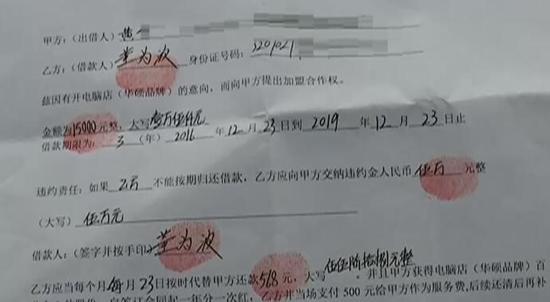 甲方：（出借人）黄
乙方：（借款人）董为波 身份证号码：320921
兹因有开电脑店（华硕品牌）的意向，而向甲方提出加盟合作权。
金额为15000元整，大写壹万伍仟元
借款期限为：3（年）2016年12月23日到2019年12月23日止
违约责任：如果乙方不能按期归还借款，乙方应向甲方交纳违约金人民币伍万元整
（大写）伍万元
借款人：（签字并按手印）董为波
乙方应当每个月每月23日按时代替甲方还款568元，大写伍佰陆拾捌元整，并且甲方获得电脑店（华硕品牌）百
自签订合同起一年分一次红，乙方并当场支付500元给甲方作为服务费，后续还清后再补